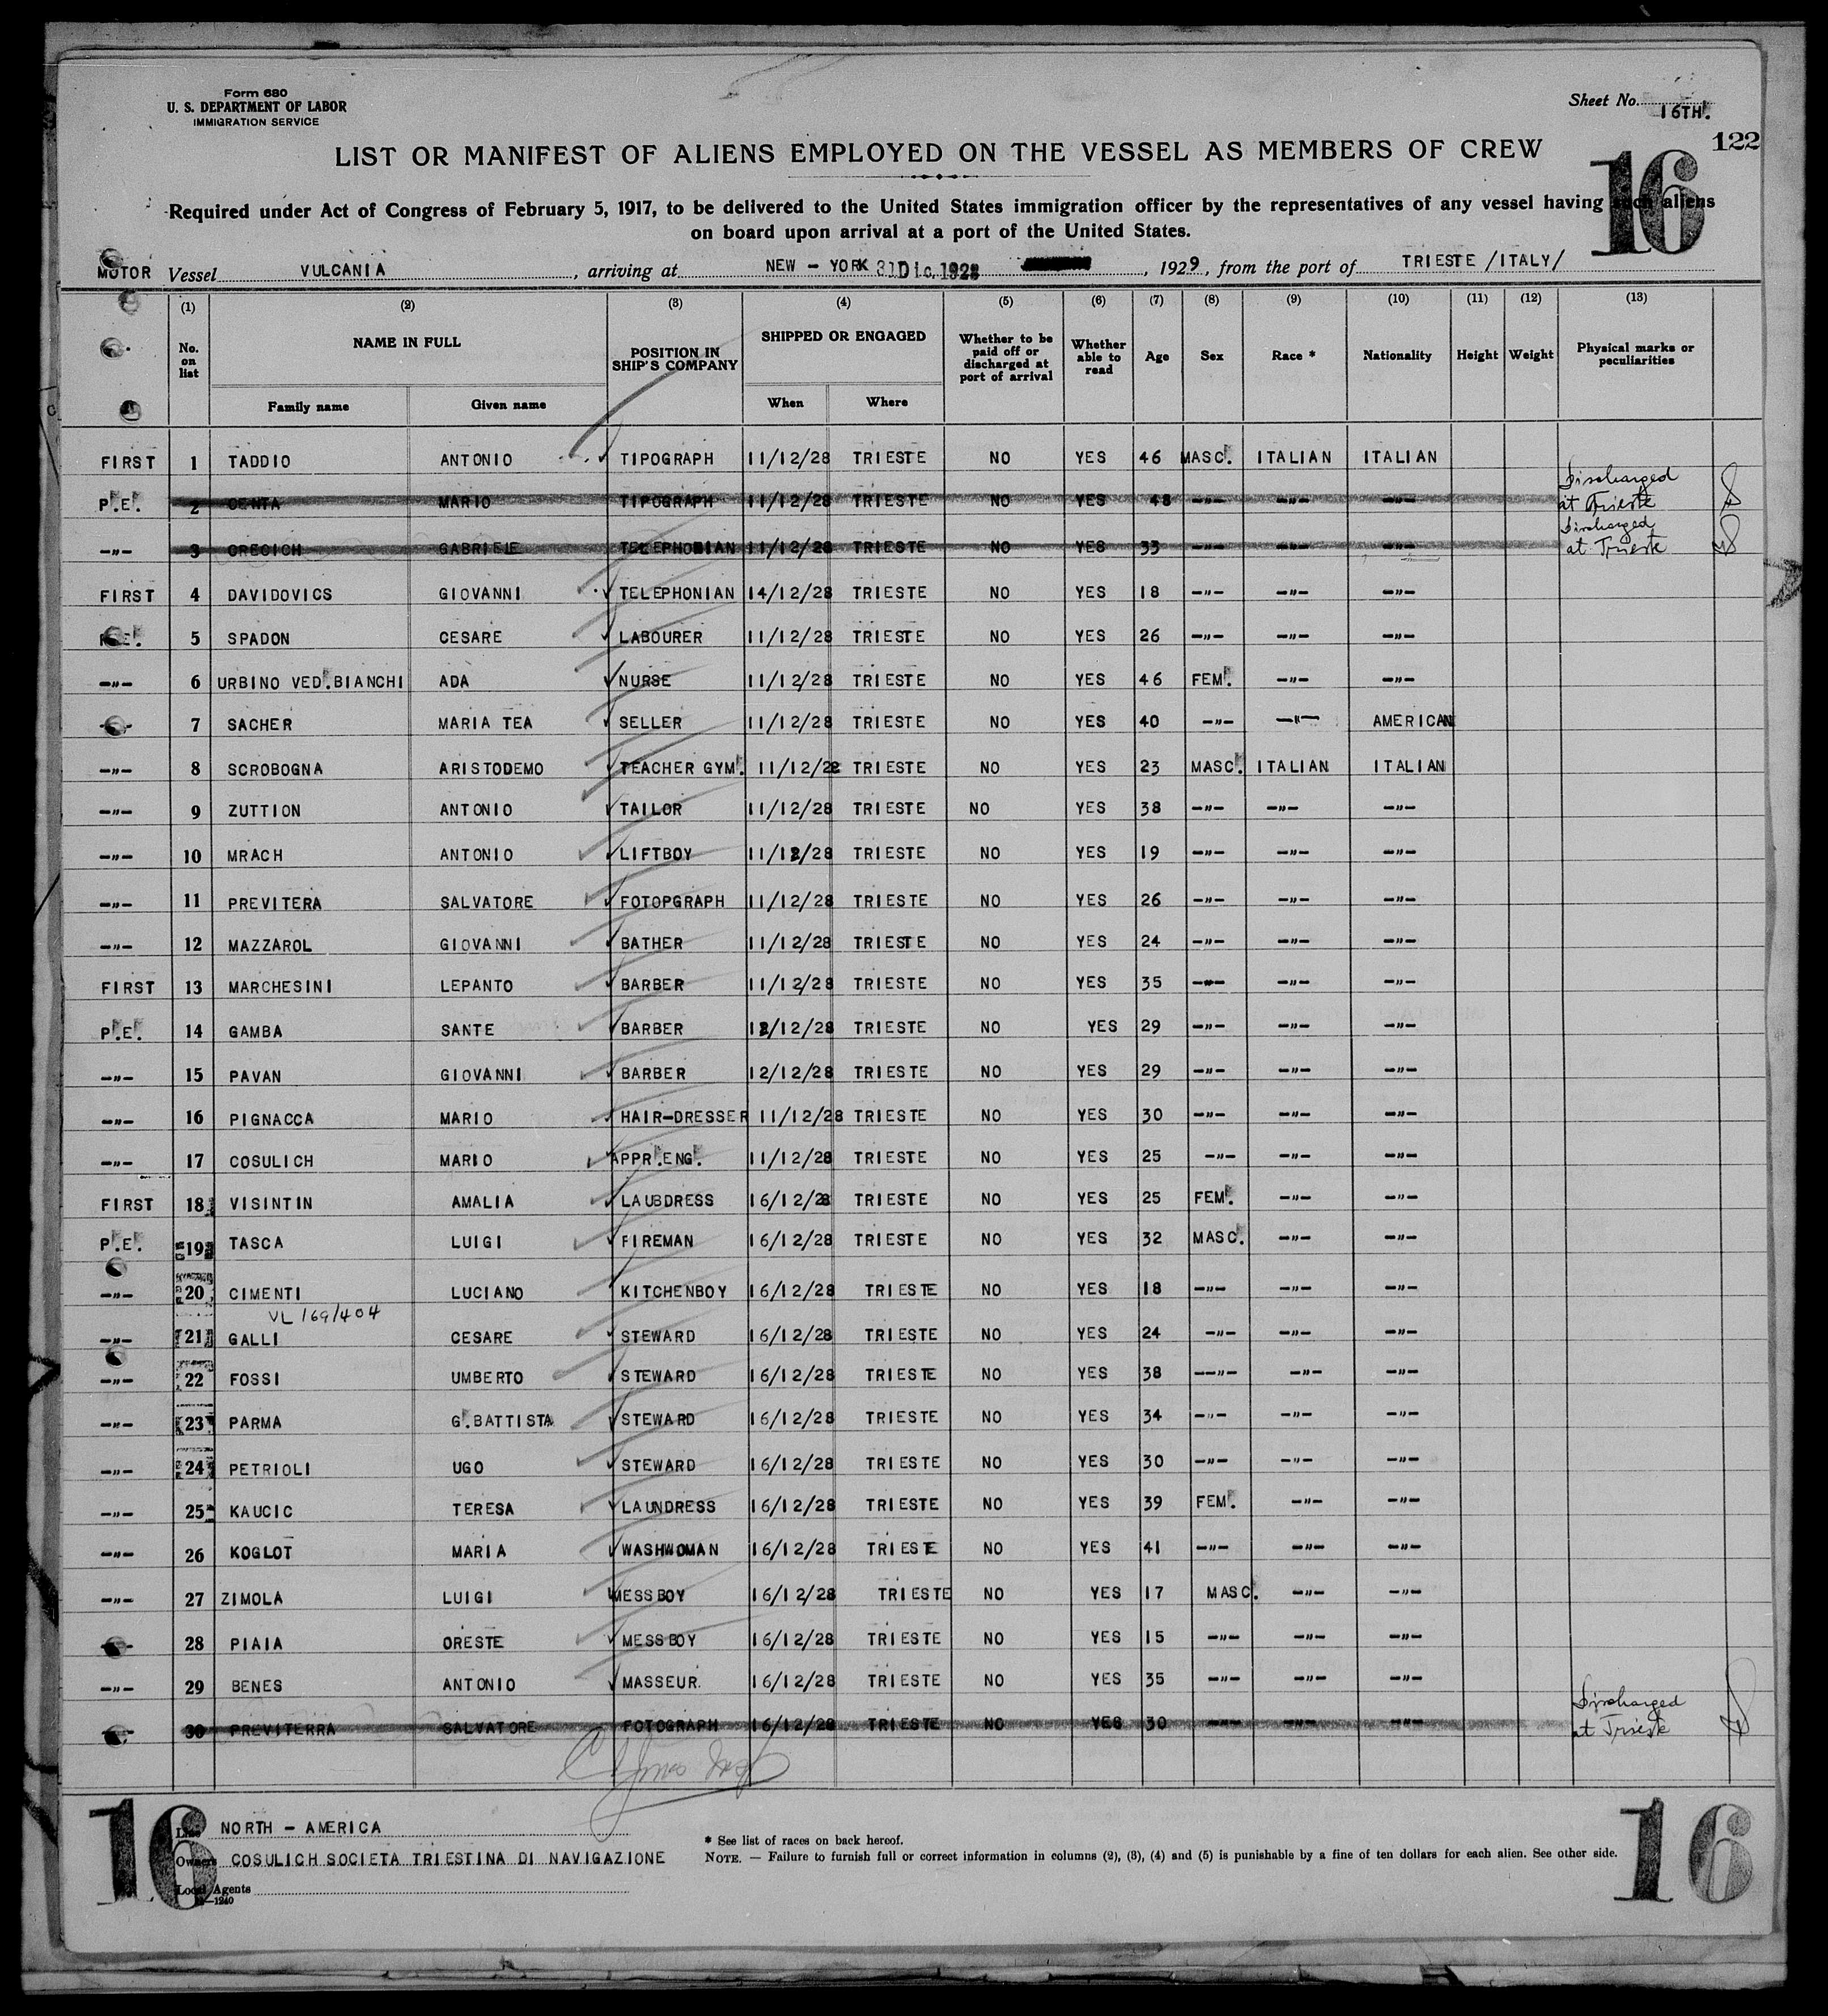 Form 680
U. S. DEPARTMENT OF LABOR
IMMIGRATION SERVICE
Sheet No. 16TH.
122
16
LIST OR MANIFEST OF ALIENS EMPLOYED ON THE VESSEL AS MEMBERS OF CREW
Required under Act of Congress of February 5, 1917, to be delivered to the United States immigration officer by the representatives of any vessel having such aliens
on board upon arrival at a port of the United States.
MOTOR Vessel VULCANIA, arriving at NEW - YORK 31 Dic. 1928, 1929, from the port of TRIESTE /ITALY/
(1) (2) (3) (4) (5) (6) (7) (8) (9) (10) (11) (12) (13)
No. on list NAME IN FULL POSITION IN SHIP'S COMPANY SHIPPED OR ENGAGED Whether to be paid off or discharged at port of arrival Whether able to read Age Sex Race * Nationality Height Weight Physical marks or peculiarities
Family name Given name When Where
FIRST 1 TADDIO ANTONIO TIPOGRAPH 11/12/28 TRIESTE NO YES 46 MASC. ITALIAN ITALIAN
P.E. 2 CENTA MARIO TIPOGRAPH 11/12/28 TRIESTE NO YES 48 -"- -"- -"- Discharged at Trieste
-"- 3 GRECICH GABRIELE TELEPHONIAN 11/12/28 TRIESTE NO YES 33 -"- -"- -"- Discharged at Trieste
FIRST 4 DAVIDOVICS GIOVANNI TELEPHONIAN 14/12/28 TRIESTE NO YES 18 -"- -"- -"-
P.E. 5 SPADON CESARE LABOURER 11/12/28 TRIESTE NO YES 26 -"- -"- -"-
-"- 6 URBINO VED.BIANCHI ADA NURSE 11/12/28 TRIESTE NO YES 46 FEM. -"- -"-
-"- 7 SACHER MARIA TEA SELLER 11/12/28 TRIESTE NO YES 40 -"- -"- AMERICAN
-"- 8 SCROBOGNA ARISTODEMO TEACHER GYM. 11/12/28 TRIESTE NO YES 23 MASC. ITALIAN ITALIAN
-"- 9 ZUTTION ANTONIO TAILOR 11/12/28 TRIESTE NO YES 38 -"- -"- -"-
-"- 10 MRACH ANTONIO LIFTBOY 11/12/28 TRIESTE NO YES 19 -"- -"- -"-
-"- 11 PREVITERA SALVATORE FOTOPGRAPH 11/12/28 TRIESTE NO YES 26 -"- -"- -"-
-"- 12 MAZZAROL GIOVANNI BATHER 11/12/28 TRIESTE NO YES 24 -"- -"- -"-
FIRST 13 MARCHESINI LEPANTO BARBER 11/12/28 TRIESTE NO YES 35 -"- -"- -"-
P.E. 14 GAMBA SANTE BARBER 12/12/28 TRIESTE NO YES 29 -"- -"- -"-
-"- 15 PAVAN GIOVANNI BARBER 12/12/28 TRIESTE NO YES 29 -"- -"- -"-
-"- 16 PIGNACCA MARIO HAIR-DRESSER 11/12/28 TRIESTE NO YES 30 -"- -"- -"-
-"- 17 COSULICH MARIO APPR.ENG. 11/12/28 TRIESTE NO YES 25 -"- -"- -"-
FIRST 18 VISINTIN AMALIA LAUBDRESS 16/12/28 TRIESTE NO YES 25 FEM. -"- -"-
P.E. 19 TASCA LUIGI FIREMAN 16/12/28 TRIESTE NO YES 32 MASC. -"- -"-
-"- 20 CIMENTI LUCIANO KITCHENBOY 16/12/28 TRIESTE NO YES 18 -"- -"- -"-
VL 169/404
-"- 21 GALLI CESARE STEWARD 16/12/28 TRIESTE NO YES 24 -"- -"- -"-
-"- 22 FOSSI UMBERTO STEWARD 16/12/28 TRIESTE NO YES 38 --"- -"- -"-
-"- 23 PARMA G.BATTISTA STEWARD 16/12/28 TRIESTE NO YES 34 -"- -"- -"-
-"- 24 PETRIOLI UGO STEWARD 16/12/28 TRIESTE NO YES 30 -"- -"- -"-
-"- 25 KAUCIC TERESA LAUNDRESS 16/12/28 TRIESTE NO YES 39 FEM. -"- -"-
-"- 26 KOGLOT MARIA WASHWOMAN 16/12/28 TRIESTE NO YES 41 -"- -"- -"-
-"- 27 ZIMOLA LUIGI MESSBOY 16/12/28 TRIESTE NO YES 17 MASC. -"- -"-
-"- 28 PIAIA ORESTE MESSBOY 16/12/28 TRIESTE NO YES 15 -"- -"- -"-
-"- 29 BENES ANTONIO MASSEUR. 16/12/28 TRIESTE NO YES 35 -"- -"- -"-
-"- 30 PREVITERRA SALVATORE FOTOGRAPH 16/12/28 TRIESTE NO YES 30 -"- -"- -"- Discharged at Trieste
16
Line NORTH - AMERICA
Owners COSULICH SOCIETA TRIESTINA DI NAVIGAZIONE
Local Agents
—1240
* See list of races on back hereof.
NOTE. — Failure to furnish full or correct information in columns (2), (3), (4) and (5) is punishable by a fine of ten dollars for each alien. See other side.
16